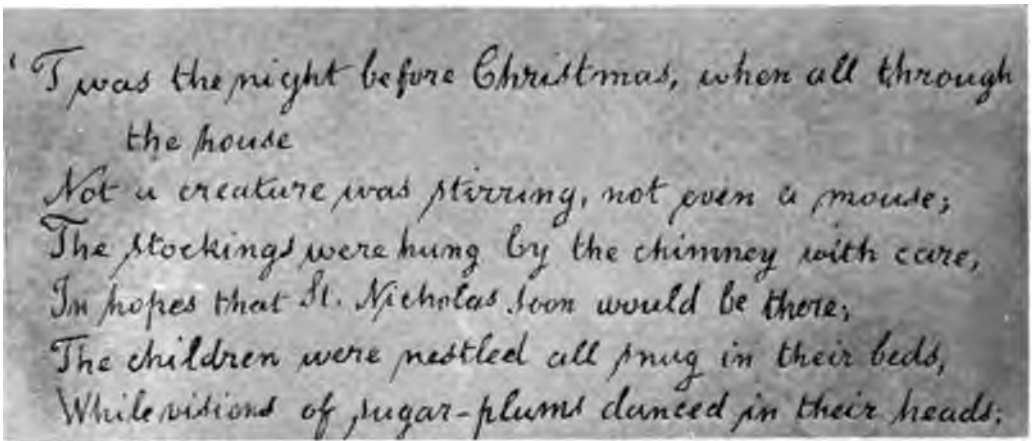 'Twas the night before Christmas, when all through
the house
Not a creature was stirring, not even a mouse;
The stockings were hung by the chimney with care,
In hopes that St. Nicholas soon would be there;
The children were nestled all snug in their beds,
While visions of sugar-plums danced in their heads;